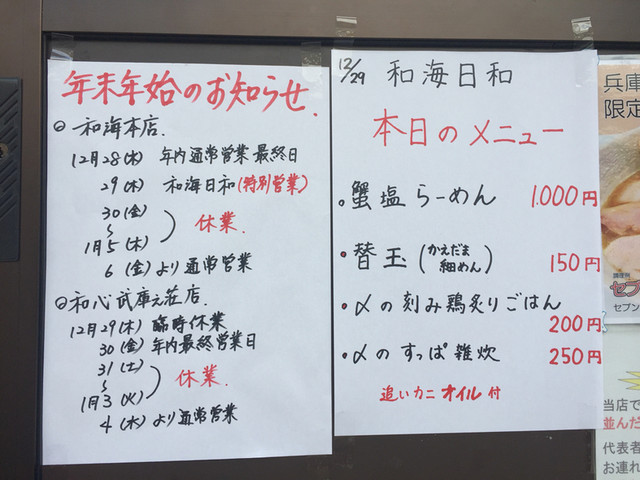 年末年始のお知らせ.
◎ 和海本店.
12月28(水) 年内通常営業最終日
29(木) 和海日和(特別営業)
30(金)
〜
休業.
1月5(木)
6(金)より通常営業
◎和心武庫之荘店.
12月29(木) 臨時休業
30(金)年内最終営業日
31(土)
〜
休業.
1月3(火)
4(水)より通常営業
12/29 和海日和
本日のメニュー
。蟹塩らーめん 1.000円
・替玉(かえだま 細めん) 150円
・〆の刻み鶏炙りごはん
200円
・〆のすっぱ雑炊 250円
追いカニオイル付
兵庫
限定
セブン
当店で
並んだ
代表者
お連れ